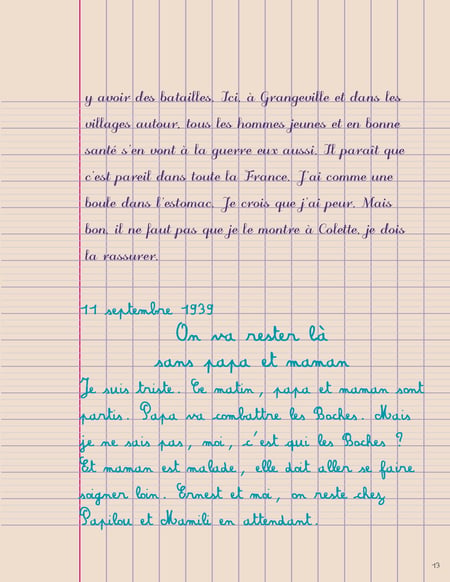 y avoir des batailles. Ici, à Grangeville et dans les
villages autour, tous les hommes jeunes et en bonne
santé s'en vont à la guerre eux aussi. Il paraît que
c'est pareil dans toute la France. J'ai comme une
boule dans l'estomac. Je crois que j'ai peur. Mais
bon, il ne faut pas que je le montre à Colette, je dois
la rassurer.
11 septembre 1939
On va rester là
sans papa et maman
Je suis triste. Ce matin, papa et maman sont
partis. Papa va combattre les Boches. Mais
je ne sais pas, moi, c'est qui les Boches ?
Et maman est malade, elle doit aller se faire
soigner loin. Ernest et moi, on reste chez
Papilou et Mamili en attendant.
13